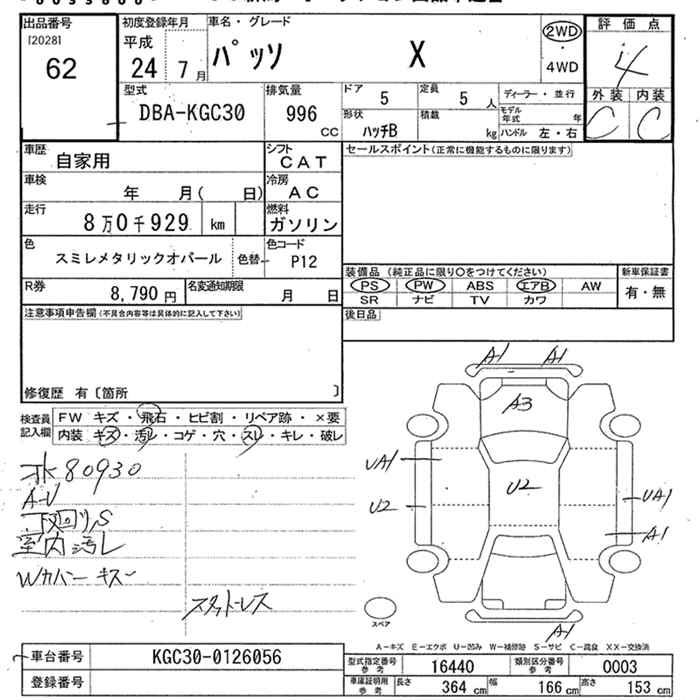 出品番号
[2028]
62
初度登録年月
平成
24年 7月
車名・グレード
パッソ X
2WD
・
4WD
評価点
4
外装 内装
C C
型式
DBA-KGC30
排気量
996 CC
ドア
5
定員
5 人
形状
ハッチB
積載
kg
ディーラー・並行
モデル年式 年
ハンドル 左・右
車歴
自家用
シフト
CAT
セールスポイント(正常に機能するものに限ります)
車検
年 月( 日)
冷房
AC
走行
8万0千929 km
燃料
ガソリン
色
スミレメタリックオパール
色替
色コード
P12
R券
8,790 円
名変通知期限
月 日
装備品 (純正品に限り○をつけてください)
PS PW ABS エアB AW
SR ナビ TV カワ
新車保証書
有・無
後日品
注意事項申告欄(不具合内容等は具体的に記入して下さい)
修復歴 有〔箇所 〕
検査員記入欄
FW キズ・飛石・ヒビ割・リペア跡・×要
内装 キズ・汚レ・コゲ・穴・スレ・キレ・破レ
80930
A-U
下回リS
室内汚レ
Wカバー キズ
スタットレス
A1 A1
A3
UA1
U2
U2
UA1
A1
A1
スペア
A-キズ E-エクボ U-凹み W-補修跡 S-サビ C-腐食 XX-交換済
車台番号
KGC30-0126056
登録番号
型式指定番号 参考
16440
類別区分番号 参考
0003
車庫証明用 参考
長さ 364 cm
幅 166 cm
高さ 153 cm